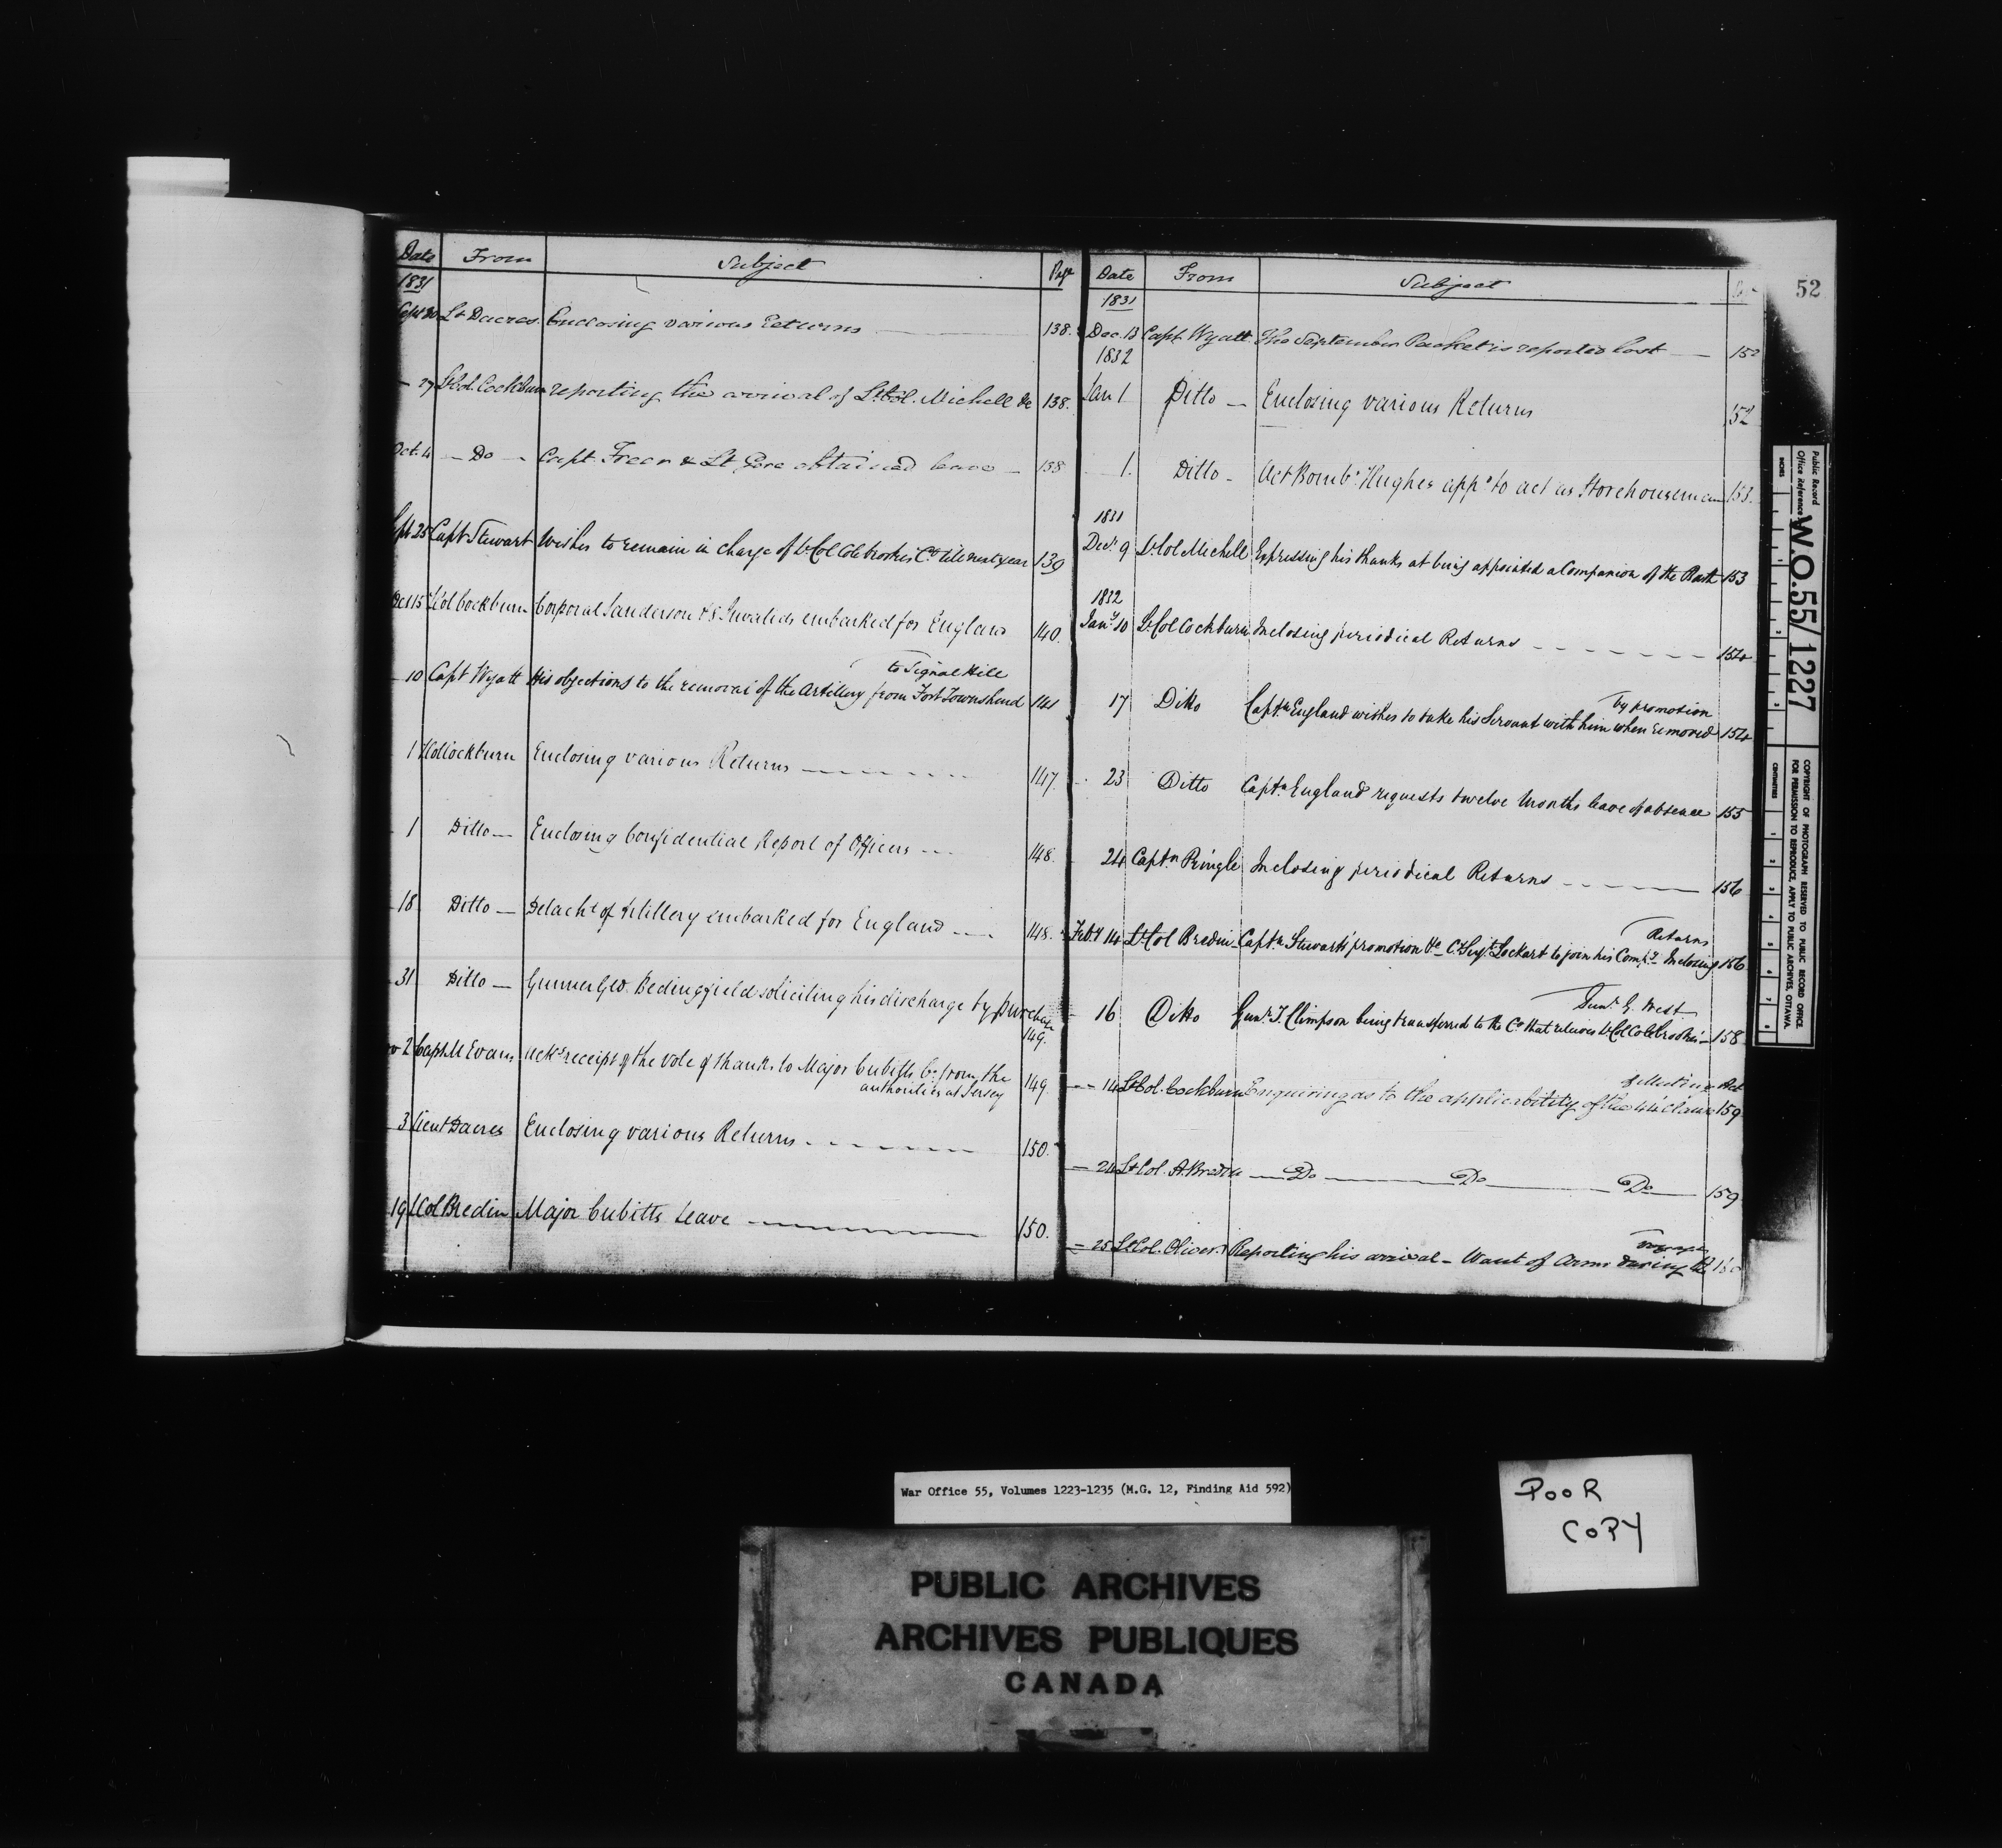 Date From Subject Page
1831
Sept 20 Lt Dacres. Enclosing various Returns 138.
— 27 Lt Col. Cockburn reporting the arrival of Lt Col. Michell &c 138.
Oct. 4 — Do — Capt. Freer & Lt Gore obtained leave — 138
Sept 25 Capt Stewart Wishes to remain in charge of Lt Col Colebrooke's Co till next year 139
Oct 15 Lt Col Cockburn Corporal Sanderson & 8 Invalids embarked for England 140.
to Signal Hill
10 Capt Wyatt His objections to the removal of the Artillery from Fort Townshend 141
1 Lt Col Cockburn Enclosing various Returns 147.
1 Ditto — Enclosing Confidential Report of Officers 148.
18 Ditto — Detacht of Artillery embarked for England 148.
31 Ditto — Gunner Geo. Bedingfield soliciting his discharge by purchase
149.
2 Capt M Evans Ackg receipt of the vote of thanks to Major Cubitts Co from the 149.
authorities at Jersey
3 Lieut Dacres Enclosing various Returns 150.
19 Lt Col Bredin Major Cubitts Leave 150.
Date From Subject
1831
Dec. 13 Capt. Wyatt. The September Packet is reported lost — 152
1832
Jan 1 Ditto — Enclosing various Returns 152
1. Ditto — Act Bombr Hughes appd to act as Storehouseman 153.
1831
Decr 9 Lt Col Michell Expressing his thanks at being appointed a Companion of the Bath 153
1832
Jany 10 Lt Col Cockburn Inclosing periodical Returns 154
by promotion
17 Ditto Captn England wishes to take his Servant with him when removed 154
23 Ditto Captn England requests twelve Months leave of absence 155
24 Captn Pringle Inclosing periodical Returns 156
Returns
Feby 14 Lt Col Bredin Captn Stewarts promotion &c Cr Serjt Lockart to join his Compy Inclosing 156
Gunr G. West
16 Ditto Gunr T. Climpson being transferred to the Co that relieves Lt Col Colebrooke's 158
of Mutiny Act
— 14 Lt Col. Cockburn Enquiring as to the applicability of the clause 159
— 24 Lt Col. A. Bredin — Do — Do — Do — 159
voyage
— 25 Lt Col. Oliver. Reporting his arrival — Want of Arms during the
52
Public Record Office Reference
W.O.55/1227
INCHES
CENTIMETRES
COPYRIGHT OF PHOTOGRAPH RESERVED TO PUBLIC RECORD OFFICE.
FOR PERMISSION TO REPRODUCE, APPLY TO PUBLIC ARCHIVES, OTTAWA.
War Office 55, Volumes 1223-1235 (M.G. 12, Finding Aid 592)
POOR
COPY
PUBLIC ARCHIVES
ARCHIVES PUBLIQUES
CANADA